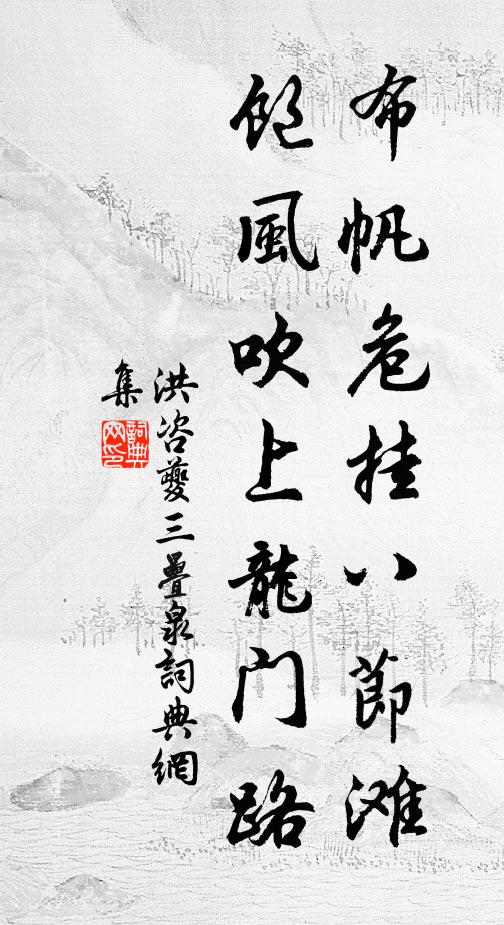 布帆危挂八節滩
飽風吹上龍門路
洪咨夔三疊泉詞典網
集
詞典网印